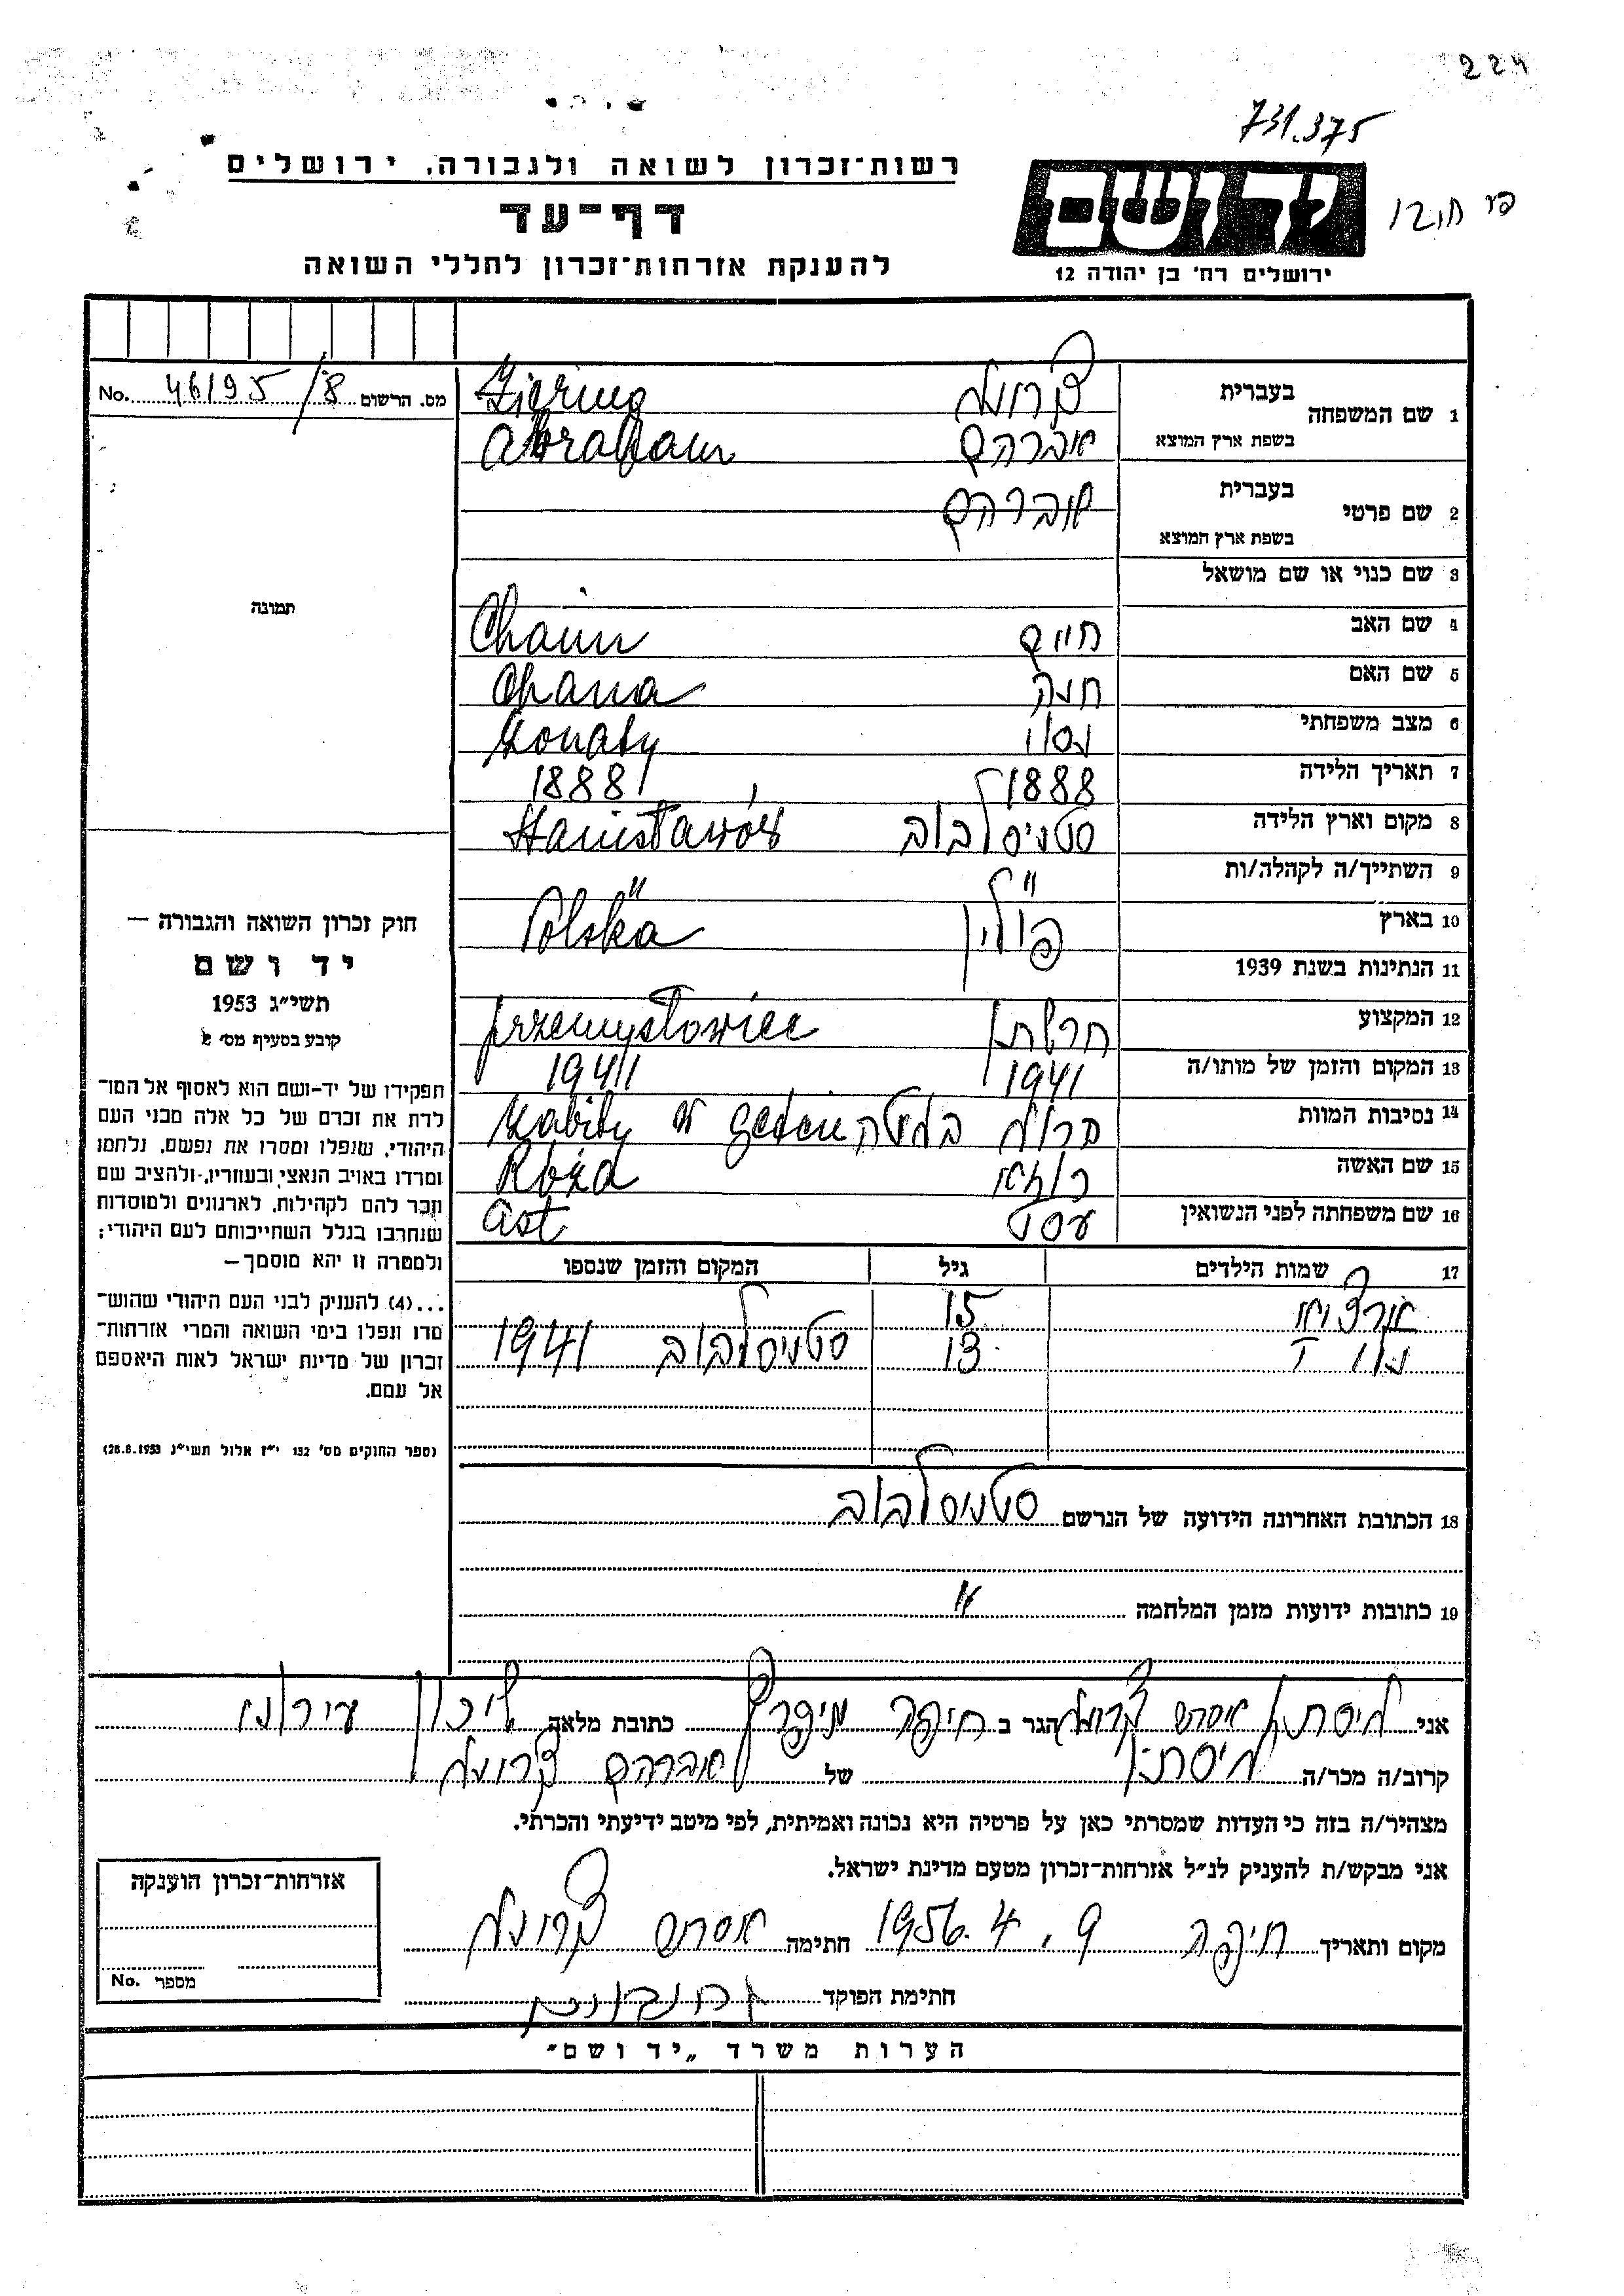 224
731.375
רשות־זכרון לשואה ולגבורה, ירושלים
דף־עד
להענקת אזרחות־זכרון לחללי השואה
יד ושם
ירושלים רח׳ בן יהודה 12
No. 46195/8 מס. הרשום
1 שם המשפחה
בעברית
בשפת ארץ המוצא
Ziering
Abraham אברהם
2 שם פרטי
בעברית אברהם
בשפת ארץ המוצא
3 שם כנוי או שם מושאל
4 שם האב חיים Chaim
5 שם האם חנה Chana
6 מצב משפחתי נשוי Żonaty
7 תאריך הלידה 1888 1888
8 מקום וארץ הלידה סטניסלבוב Stanisławów
9 השתייך/ה לקהלה/ות " "
10 בארץ פולין Polska
11 הנתינות בשנת 1939
12 המקצוע חרשתן przemysłowiec
13 המקום והזמן של מותו/ה 1941 1941
14 נסיבות המוות הרוג בגיטה Zabity w getcie
15 שם האשה רוזא Róża
16 שם משפחתה לפני הנשואין אסט Ast
17 שמות הילדים גיל המקום והזמן שנספו
15
13 סטניסלבוב 1941
18 הכתובת האחרונה הידועה של הנרשם סטניסלבוב
19 כתובות ידועות מזמן המלחמה "
תמונה
חוק זכרון השואה והגבורה —
יד ושם
תשי״ג 1953
קובע בסעיף מס׳ 2
תפקידו של יד–ושם הוא לאסוף אל המו־
לדת את זכרם של כל אלה מבני העם
היהודי, שנפלו ומסרו את נפשם, נלחמו
ומרדו באויב הנאצי ובעוזריו, ולהציב שם
וזכר להם לקהילות, לארגונים ולמוסדות
שנחרבו בגלל השתייכותם לעם היהודי;
ולמטרה זו יהא מוסמך —
...(4) להעניק לבני העם היהודי שהוש־
מדו ונפלו בימי השואה והמרי אזרחות־
זכרון של מדינת ישראל לאות היאספם
אל עמם.
(ספר החוקים מס׳ 132 י״ז אלול תשי״ג 28.8.1953)
אני הגר ב חיפה כתובת מלאה שיכון עירוני
קרוב/ה מכר/ה של אברהם
מצהיר/ה בזה כי העדות שמסרתי כאן על פרטיה היא נכונה ואמיתית, לפי מיטב ידיעתי והכרתי.
אני מבקש/ת להעניק לנ״ל אזרחות־זכרון מטעם מדינת ישראל.
מקום ותאריך חיפה 9.4.1956 חתימה
חתימת הפוקד
אזרחות־זכרון הוענקה
מספר No.
הערות משרד „יד ושם״